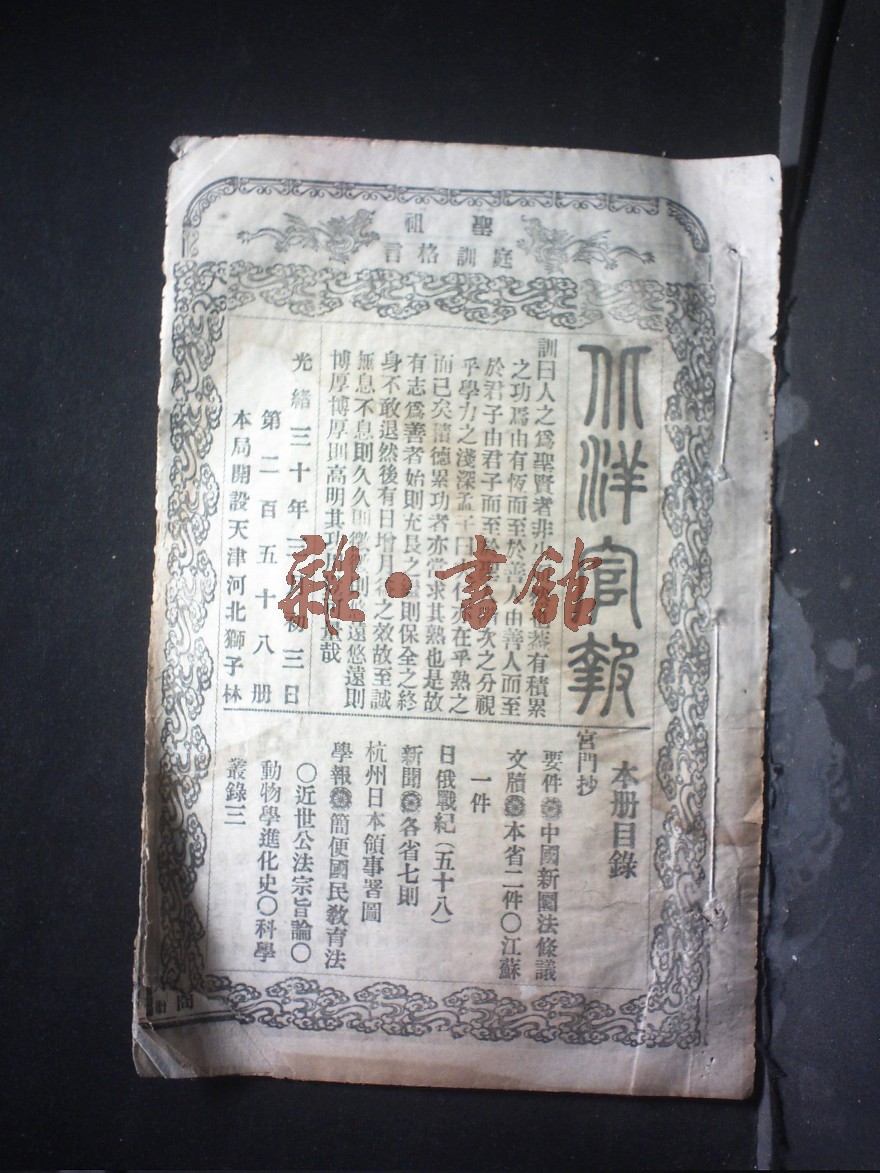 聖祖
庭訓格言
北洋官報
訓曰人之爲聖賢者非
有積累
之功焉由有恆而至於善人由善人而至
於君子由君子而至於聖
次之分視
乎學力之淺深孟子曰
仁亦在乎熟之
而已矣積德累功者亦當求其熟也是故
有志爲善者始則充長之
則保全之終
身不敢退然後有日增月
之效故至誠
無息不息則久久則徵
則悠遠悠遠則
博厚博厚則高明其功
量哉
光緒三十年三
初三日
第二百五十八册
本局開設天津河北獅子林
本册目錄
宮門抄
要件 中國新圜法條議
文牘 本省二件○江蘇
一件
日俄戰紀(五十八)
新聞 各省七則
杭州日本領事署圖
學報 簡便國民教育法
○近世公法宗旨論○
動物學進化史○科學
叢錄三
雜·書館